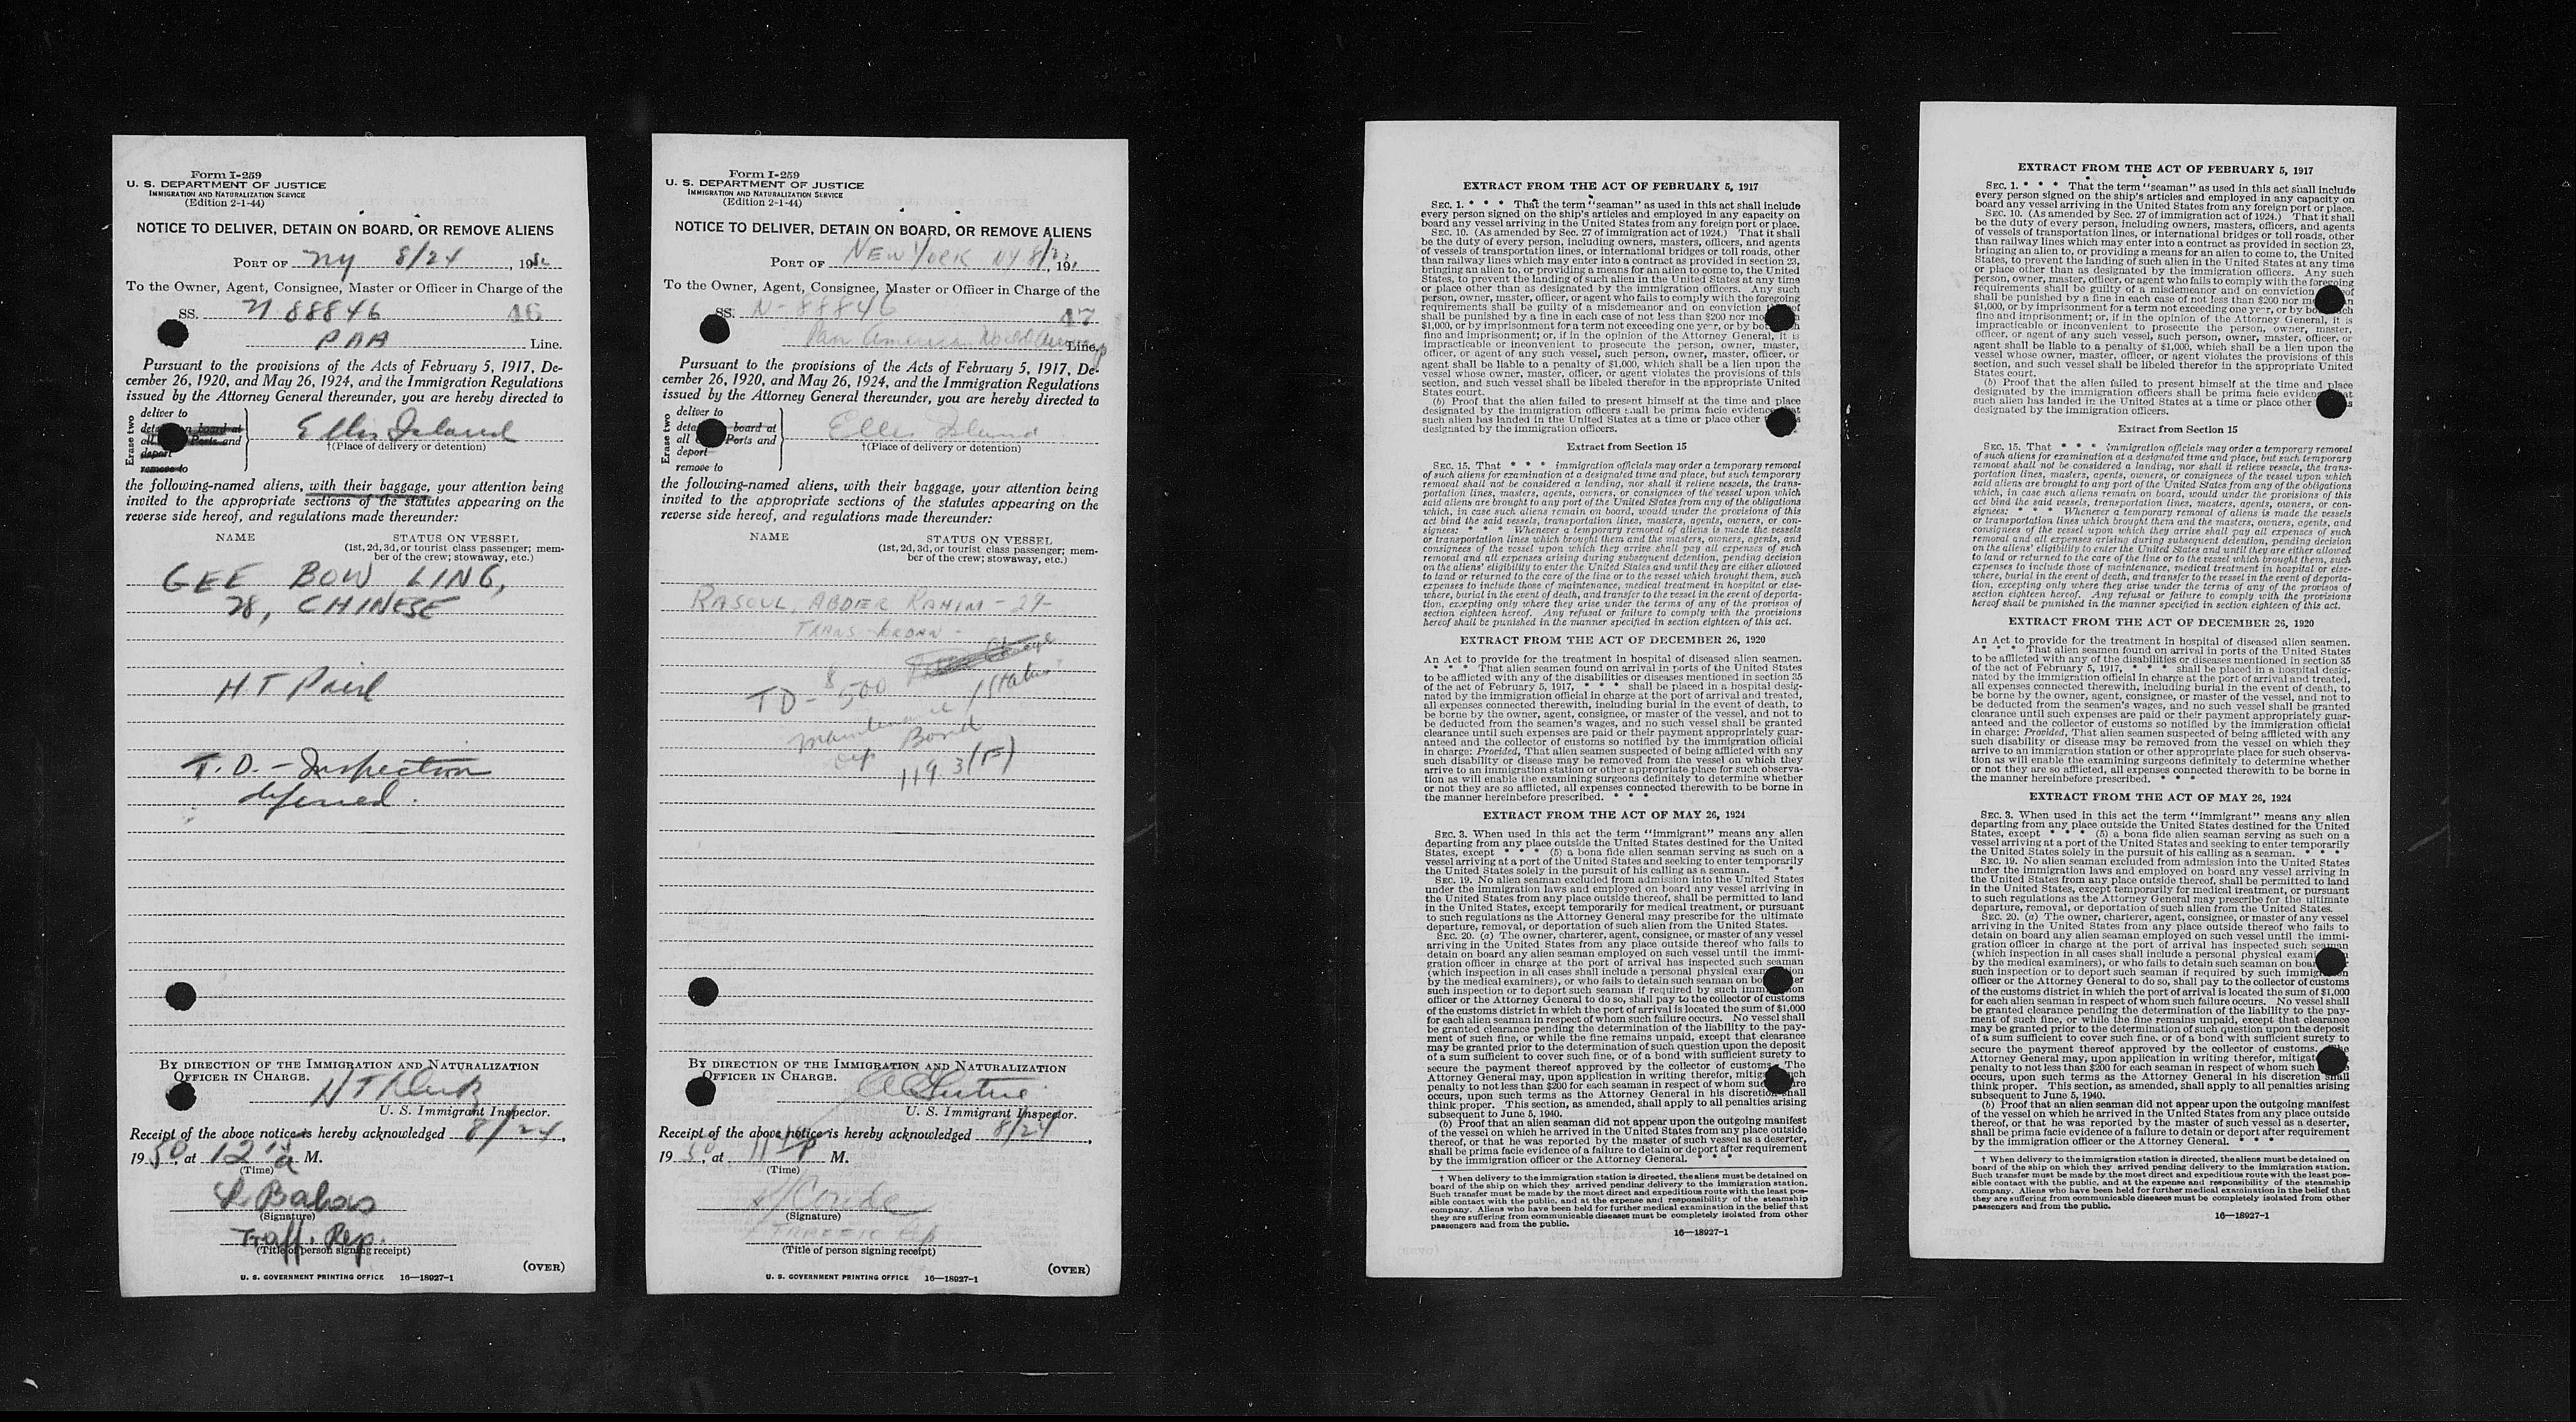 Form I-259
U. S. DEPARTMENT OF JUSTICE
IMMIGRATION AND NATURALIZATION SERVICE
(Edition 2-1-44)
NOTICE TO DELIVER, DETAIN ON BOARD, OR REMOVE ALIENS
PORT OF NY 8/24, 19
To the Owner, Agent, Consignee, Master or Officer in Charge of the
SS. N 88846 16
PAA Line.
Pursuant to the provisions of the Acts of February 5, 1917, De-
cember 26, 1920, and May 26, 1924, and the Immigration Regulations
issued by the Attorney General thereunder, you are hereby directed to
Erase two
deliver to
board at
all Ports and
deport
remove to
Ellis Island
†(Place of delivery or detention)
the following-named aliens, with their baggage, your attention being
invited to the appropriate sections of the statutes appearing on the
reverse side hereof, and regulations made thereunder:
NAME STATUS ON VESSEL
(1st, 2d, 3d, or tourist class passenger; mem-
ber of the crew; stowaway, etc.)
GEE BOW LING,
28, CHINESE
HT Paid
T.D. - Inspection
deferred.
BY DIRECTION OF THE IMMIGRATION AND NATURALIZATION
OFFICER IN CHARGE.
U. S. Immigrant Inspector.
Receipt of the above notice is hereby acknowledged 8/24,
1950, at 12 a M.
(Time)
(Signature)
Traff. Rep.
(Title of person signing receipt)
(OVER)
U. S. GOVERNMENT PRINTING OFFICE 16—18927-1
Form I-259
U. S. DEPARTMENT OF JUSTICE
IMMIGRATION AND NATURALIZATION SERVICE
(Edition 2-1-44)
NOTICE TO DELIVER, DETAIN ON BOARD, OR REMOVE ALIENS
PORT OF NEW YORK NY 8/, 19
To the Owner, Agent, Consignee, Master or Officer in Charge of the
SS. N-88846 17
Pan American World Line.
Pursuant to the provisions of the Acts of February 5, 1917, De-
cember 26, 1920, and May 26, 1924, and the Immigration Regulations
issued by the Attorney General thereunder, you are hereby directed to
Erase two
deliver to
board at
all Ports and
deport
remove to
Ellis Island
†(Place of delivery or detention)
the following-named aliens, with their baggage, your attention being
invited to the appropriate sections of the statutes appearing on the
reverse side hereof, and regulations made thereunder:
NAME STATUS ON VESSEL
(1st, 2d, 3d, or tourist class passenger; mem-
ber of the crew; stowaway, etc.)
RASOUL, ABDER RAHIM - 29-
TRANS-JORDAN -
TD - $500
maintenance / Status
dep Bond
119.3(F)
BY DIRECTION OF THE IMMIGRATION AND NATURALIZATION
OFFICER IN CHARGE.
U. S. Immigrant Inspector.
Receipt of the above notice is hereby acknowledged 8/24,
1950, at 11 p M.
(Time)
(Signature)
Traffic Rep
(Title of person signing receipt)
(OVER)
U. S. GOVERNMENT PRINTING OFFICE 16—18927-1
EXTRACT FROM THE ACT OF FEBRUARY 5, 1917
SEC. 1. * * * That the term "seaman" as used in this act shall include
every person signed on the ship's articles and employed in any capacity on
board any vessel arriving in the United States from any foreign port or place.
SEC. 10. (As amended by Sec. 27 of immigration act of 1924.) That it shall
be the duty of every person, including owners, masters, officers, and agents
of vessels of transportation lines, or international bridges or toll roads, other
than railway lines which may enter into a contract as provided in section 23,
bringing an alien to, or providing a means for an alien to come to, the United
States, to prevent the landing of such alien in the United States at any time
or place other than as designated by the immigration officers. Any such
person, owner, master, officer, or agent who fails to comply with the foregoing
requirements shall be guilty of a misdemeanor and on conviction of
shall be punished by a fine in each case of not less than $200 nor
$1,000, or by imprisonment for a term not exceeding one year, or by
fine and imprisonment; or, if in the opinion of the Attorney General, it is
impracticable or inconvenient to prosecute the person, owner, master,
officer, or agent of any such vessel, such person, owner, master, officer, or
agent shall be liable to a penalty of $1,000, which shall be a lien upon the
vessel whose owner, master, officer, or agent violates the provisions of this
section, and such vessel shall be libeled therefor in the appropriate United
States court.
(b) Proof that the alien failed to present himself at the time and place
designated by the immigration officers shall be prima facie evidence
such alien has landed in the United States at a time or place other
designated by the immigration officers.
Extract from Section 15
SEC. 15. That * * * immigration officials may order a temporary removal
of such aliens for examination at a designated time and place, but such temporary
removal shall not be considered a landing, nor shall it relieve vessels, the trans-
portation lines, masters, agents, owners, or consignees of the vessel upon which
said aliens are brought to any port of the United States from any of the obligations
which, in case such aliens remain on board, would under the provisions of this
act bind the said vessels, transportation lines, masters, agents, owners, or con-
signees: * * * Whenever a temporary removal of aliens is made the vessels
or transportation lines which brought them and the masters, owners, agents, and
consignees of the vessel upon which they arrive shall pay all expenses of such
removal and all expenses arising during subsequent detention, pending decision
on the aliens' eligibility to enter the United States and until they are either allowed
to land or returned to the care of the line or to the vessel which brought them, such
expenses to include those of maintenance, medical treatment in hospital or else-
where, burial in the event of death, and transfer to the vessel in the event of deporta-
tion, excepting only where they arise under the terms of any of the provisos of
section eighteen hereof. Any refusal or failure to comply with the provisions
hereof shall be punished in the manner specified in section eighteen of this act.
EXTRACT FROM THE ACT OF DECEMBER 26, 1920
An Act to provide for the treatment in hospital of diseased alien seamen.
* * * That alien seamen found on arrival in ports of the United States
to be afflicted with any of the disabilities or diseases mentioned in section 35
of the act of February 5, 1917, * * * shall be placed in a hospital desig-
nated by the immigration official in charge at the port of arrival and treated,
all expenses connected therewith, including burial in the event of death, to
be borne by the owner, agent, consignee, or master of the vessel, and not to
be deducted from the seamen's wages, and no such vessel shall be granted
clearance until such expenses are paid or their payment appropriately guar-
anteed and the collector of customs so notified by the immigration official
in charge: Provided, That alien seamen suspected of being afflicted with any
such disability or disease may be removed from the vessel on which they
arrive to an immigration station or other appropriate place for such observa-
tion as will enable the examining surgeons definitely to determine whether
or not they are so afflicted, all expenses connected therewith to be borne in
the manner hereinbefore prescribed. * * *
EXTRACT FROM THE ACT OF MAY 26, 1924
SEC. 3. When used in this act the term "immigrant" means any alien
departing from any place outside the United States destined for the United
States, except * * * (5) a bona fide alien seaman serving as such on a
vessel arriving at a port of the United States and seeking to enter temporarily
the United States solely in the pursuit of his calling as a seaman. * * *
SEC. 19. No alien seaman excluded from admission into the United States
under the immigration laws and employed on board any vessel arriving in
the United States from any place outside thereof, shall be permitted to land
in the United States, except temporarily for medical treatment, or pursuant
to such regulations as the Attorney General may prescribe for the ultimate
departure, removal, or deportation of such alien from the United States.
SEC. 20. (a) The owner, charterer, agent, consignee, or master of any vessel
arriving in the United States from any place outside thereof who fails to
detain on board any alien seaman employed on such vessel until the immi-
gration officer in charge at the port of arrival has inspected such seaman
(which inspection in all cases shall include a personal physical examination
by the medical examiners), or who fails to detain such seaman on board
such inspection or to deport such seaman if required by such immigration
officer or the Attorney General to do so, shall pay to the collector of customs
of the customs district in which the port of arrival is located the sum of $1,000
for each alien seaman in respect of whom such failure occurs. No vessel shall
be granted clearance pending the determination of the liability to the pay-
ment of such fine, or while the fine remains unpaid, except that clearance
may be granted prior to the determination of such question upon the deposit
of a sum sufficient to cover such fine, or of a bond with sufficient surety to
secure the payment thereof approved by the collector of customs. The
Attorney General may, upon application in writing therefor, mitigate such
penalty to not less than $200 for each seaman in respect of whom such
occurs, upon such terms as the Attorney General in his discretion shall
think proper. This section, as amended, shall apply to all penalties arising
subsequent to June 5, 1940.
(b) Proof that an alien seaman did not appear upon the outgoing manifest
of the vessel on which he arrived in the United States from any place outside
thereof, or that he was reported by the master of such vessel as a deserter,
shall be prima facie evidence of a failure to detain or deport after requirement
by the immigration officer or the Attorney General. * * *
† When delivery to the immigration station is directed, the aliens must be detained on
board of the ship on which they arrived pending delivery to the immigration station.
Such transfer must be made by the most direct and expeditious route with the least pos-
sible contact with the public, and at the expense and responsibility of the steamship
company. Aliens who have been held for further medical examination in the belief that
they are suffering from communicable diseases must be completely isolated from other
passengers and from the public.
16—18927-1
EXTRACT FROM THE ACT OF FEBRUARY 5, 1917
SEC. 1. * * * That the term "seaman" as used in this act shall include
every person signed on the ship's articles and employed in any capacity on
board any vessel arriving in the United States from any foreign port or place.
SEC. 10. (As amended by Sec. 27 of immigration act of 1924.) That it shall
be the duty of every person, including owners, masters, officers, and agents
of vessels of transportation lines, or international bridges or toll roads, other
than railway lines which may enter into a contract as provided in section 23,
bringing an alien to, or providing a means for an alien to come to, the United
States, to prevent the landing of such alien in the United States at any time
or place other than as designated by the immigration officers. Any such
person, owner, master, officer, or agent who fails to comply with the foregoing
requirements shall be guilty of a misdemeanor and on conviction of
shall be punished by a fine in each case of not less than $200 nor
$1,000, or by imprisonment for a term not exceeding one year, or by
fine and imprisonment; or, if in the opinion of the Attorney General, it is
impracticable or inconvenient to prosecute the person, owner, master,
officer, or agent of any such vessel, such person, owner, master, officer, or
agent shall be liable to a penalty of $1,000, which shall be a lien upon the
vessel whose owner, master, officer, or agent violates the provisions of this
section, and such vessel shall be libeled therefor in the appropriate United
States court.
(b) Proof that the alien failed to present himself at the time and place
designated by the immigration officers shall be prima facie evidence
such alien has landed in the United States at a time or place other
designated by the immigration officers.
Extract from Section 15
SEC. 15. That * * * immigration officials may order a temporary removal
of such aliens for examination at a designated time and place, but such temporary
removal shall not be considered a landing, nor shall it relieve vessels, the trans-
portation lines, masters, agents, owners, or consignees of the vessel upon which
said aliens are brought to any port of the United States from any of the obligations
which, in case such aliens remain on board, would under the provisions of this
act bind said vessels, transportation lines, masters, agents, owners, or con-
signees: * * * Whenever a temporary removal of aliens is made the vessels
or transportation lines which brought them and the masters, owners, agents, and
consignees of the vessel upon which they arrive shall pay all expenses of such
removal and all expenses arising during subsequent detention, pending decision
on the aliens' eligibility to enter the United States and until they are either allowed
to land or returned to the care of the line or to the vessel which brought them, such
expenses to include those of maintenance, medical treatment in hospital or else-
where, burial in the event of death, and transfer to the vessel in the event of deporta-
tion, excepting only where they arise under the terms of any of the provisos of
section eighteen hereof. Any refusal or failure to comply with the provisions
hereof shall be punished in the manner specified in section eighteen of this act.
EXTRACT FROM THE ACT OF DECEMBER 26, 1920
An Act to provide for the treatment in hospital of diseased alien seamen.
* * * That alien seamen found on arrival in ports of the United States
to be afflicted with any of the disabilities or diseases mentioned in section 35
of the act of February 5, 1917, * * * shall be placed in a hospital desig-
nated by the immigration official in charge at the port of arrival and treated,
all expenses connected therewith, including burial in the event of death, to
be borne by the owner, agent, consignee, or master of the vessel, and not to
be deducted from the seamen's wages, and no such vessel shall be granted
clearance until such expenses are paid or their payment appropriately guar-
anteed and the collector of customs so notified by the immigration official
in charge: Provided, That alien seamen suspected of being afflicted with any
such disability or disease may be removed from the vessel on which they
arrive to an immigration station or other appropriate place for such observa-
tion as will enable the examining surgeons definitely to determine whether
or not they are so afflicted, all expenses connected therewith to be borne in
the manner hereinbefore prescribed. * * *
EXTRACT FROM THE ACT OF MAY 26, 1924
SEC. 3. When used in this act the term "immigrant" means any alien
departing from any place outside the United States destined for the United
States, except * * * (5) a bona fide alien seaman serving as such on a
vessel arriving at a port of the United States and seeking to enter temporarily
the United States solely in the pursuit of his calling as a seaman. * * *
SEC. 19. No alien seaman excluded from admission into the United States
under the immigration laws and employed on board any vessel arriving in
the United States from any place outside thereof, shall be permitted to land
in the United States, except temporarily for medical treatment, or pursuant
to such regulations as the Attorney General may prescribe for the ultimate
departure, removal, or deportation of such alien from the United States.
SEC. 20. (a) The owner, charterer, agent, consignee, or master of any vessel
arriving in the United States from any place outside thereof who fails to
detain on board any alien seaman employed on such vessel until the immi-
gration officer in charge at the port of arrival has inspected such seaman
(which inspection in all cases shall include a personal physical
by the medical examiners), or who fails to detain such seaman on board
such inspection or to deport such seaman if required by such immigration
officer or the Attorney General to do so, shall pay to the collector of customs
of the customs district in which the port of arrival is located the sum of $1,000
for each alien seaman in respect of whom such failure occurs. No vessel shall
be granted clearance pending the determination of the liability to the pay-
ment of such fine, or while the fine remains unpaid, except that clearance
may be granted prior to the determination of such question upon the deposit
of a sum sufficient to cover such fine, or of a bond with sufficient surety to
secure the payment thereof approved by the collector of customs. The
Attorney General may, upon application in writing therefor, mitigate
penalty to not less than $200 for each seaman in respect of whom such
occurs, upon such terms as the Attorney General in his discretion shall
think proper. This section, as amended, shall apply to all penalties arising
subsequent to June 5, 1940.
(b) Proof that an alien seaman did not appear upon the outgoing manifest
of the vessel on which he arrived in the United States from any place outside
thereof, or that he was reported by the master of such vessel as a deserter,
shall be prima facie evidence of a failure to detain or deport after requirement
by the immigration officer or the Attorney General. * * *
† When delivery to the immigration station is directed, the aliens must be detained on
board of the ship on which they arrived pending delivery to the immigration station.
Such transfer must be made by the most direct and expeditious route with the least pos-
sible contact with the public, and at the expense and responsibility of the steamship
company. Aliens who have been held for further medical examination in the belief that
they are suffering from communicable diseases must be completely isolated from other
passengers and from the public.
16—18927-1